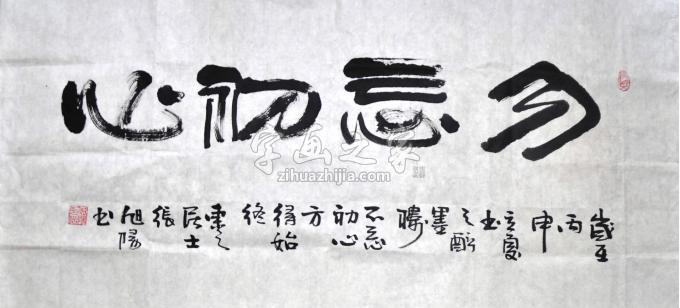 勿忘初心
字画之家
zihuazhijia.com
歲在丙申立夏书之醉墨樓不忘初心方得始終居士張旭陽书